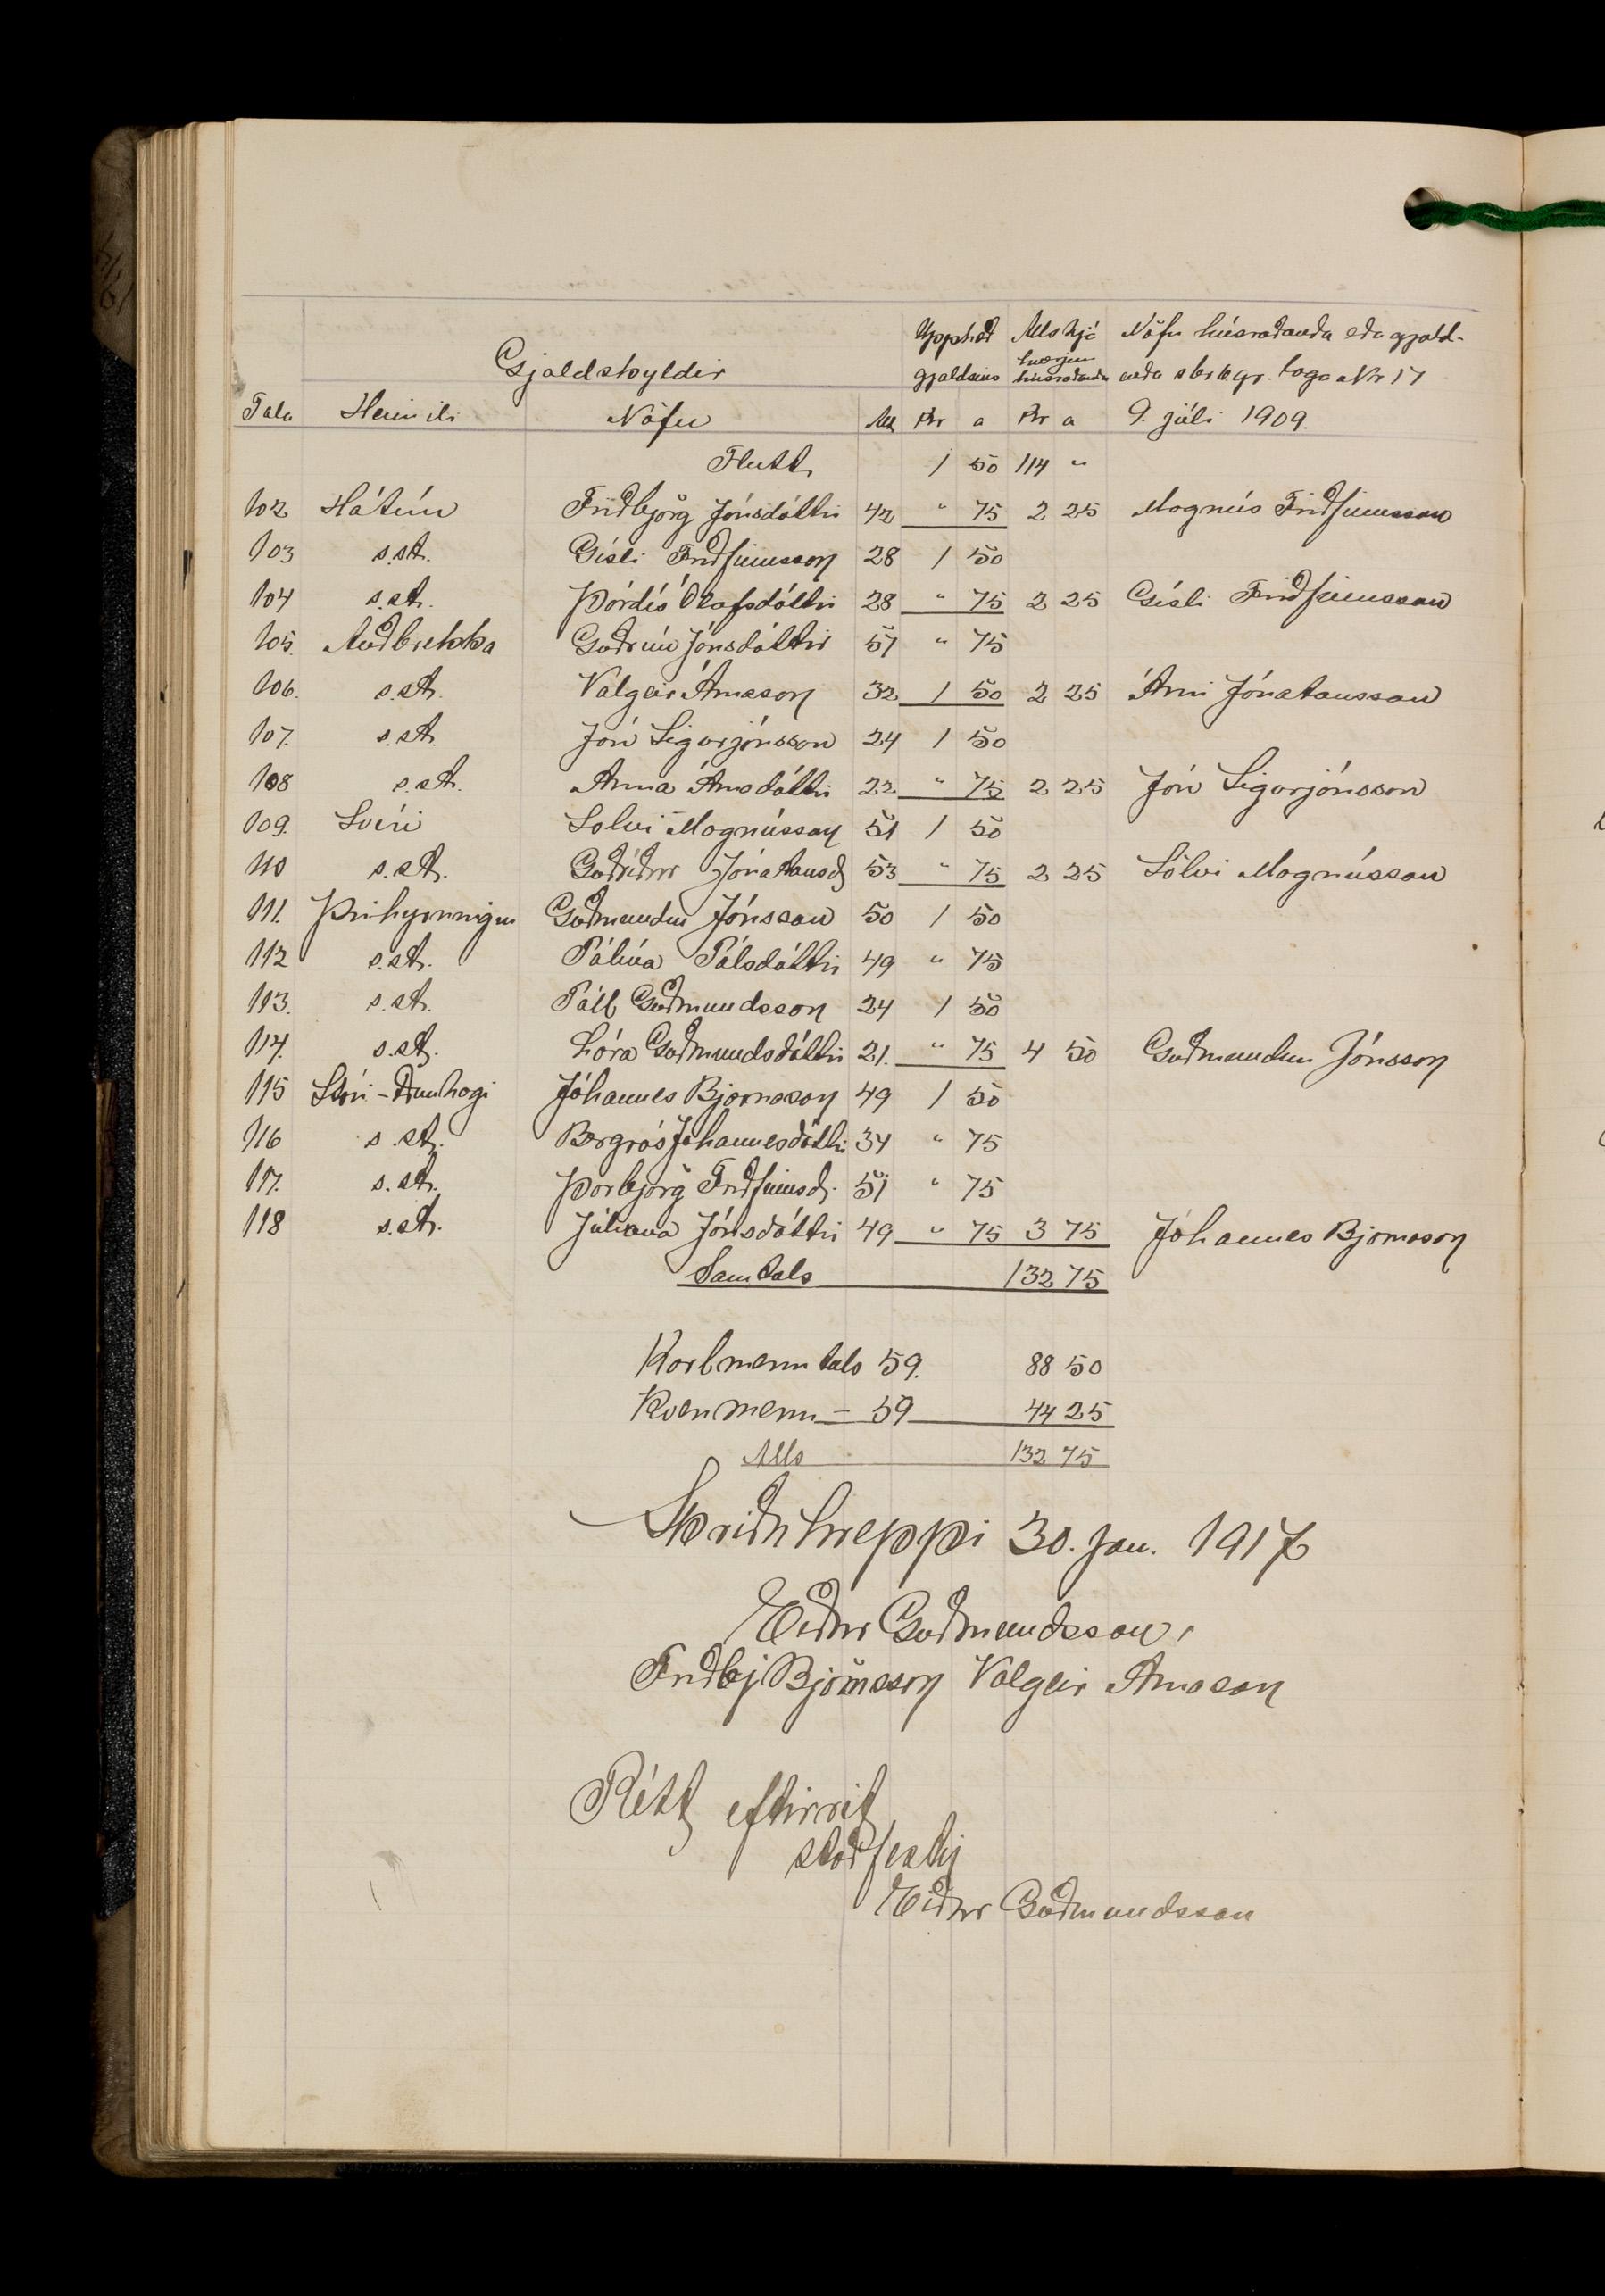 Gjaldskyldir Upphæð Alls hjá Nöfn húsráðanda eða gjald-
gjaldsins hverjum húsráðanda enda sbr 6 gr. laga Nr 17
Tala Heimili Nöfn Ald Kr a Kr a 9. júli 1909.
Flutt 1 50 114 "
102 Hátún Friðbjörg Jónsdóttir 42 " 75 2 25 Magnús Friðfinnsson
103 s.st. Gísli Friðfinnsson 28 1 50
104 s.st. Þórdís Ólafsdóttir 28 " 75 2 25 Gísli Friðfinnsson
105. Auðbrekka Guðrún Jónsdóttir 57 " 75
106. s.st. Valgeir Árnason 32 1 50 2 25 Árni Jónatansson
107. s.st. Jón Sigurjónsson 24 1 50
108 s.st. Anna Árnadóttir 22. " 75 2 25 Jón Sigurjónsson
109. Svíri Sölvi Magnússon 51 1 50
110 s.st. Guðríður Jónatansd 53 " 75 2 25 Sölvi Magnússon
111. Þríhyrningur Guðmundur Jónsson 50 1 50
112 s.st. Pálína Pálsdóttir 49 " 75
113. s.st. Páll Guðmundsson 24 1 50
114. s.st. Lóra Guðmundsdóttir 21. " 75 4 50 Guðmundur Jónsson
115 Stóri-Dunhagi Jóhannes Bjarnason 49 1 50
116 s.st. Bergrós Jóhannesdóttir 34 " 75
117. s.st. Þorbjörg Friðfinnsd. 51 " 75
118 s.st. Júlíana Jónsdóttir 49 " 75 3 75 Jóhannes Bjarnason
Samtals 132 75
Karlmenn tals 59. 88 50
Kvenmenn – 59 44 25
Alls 132 75
Skriðuhreppi 30. Jan. 1917
Eiður Guðmundsson,
Friðbj Björnsson Valgeir Árnason
Rétt eftirrit
staðfestir
Eiður Guðmundsson